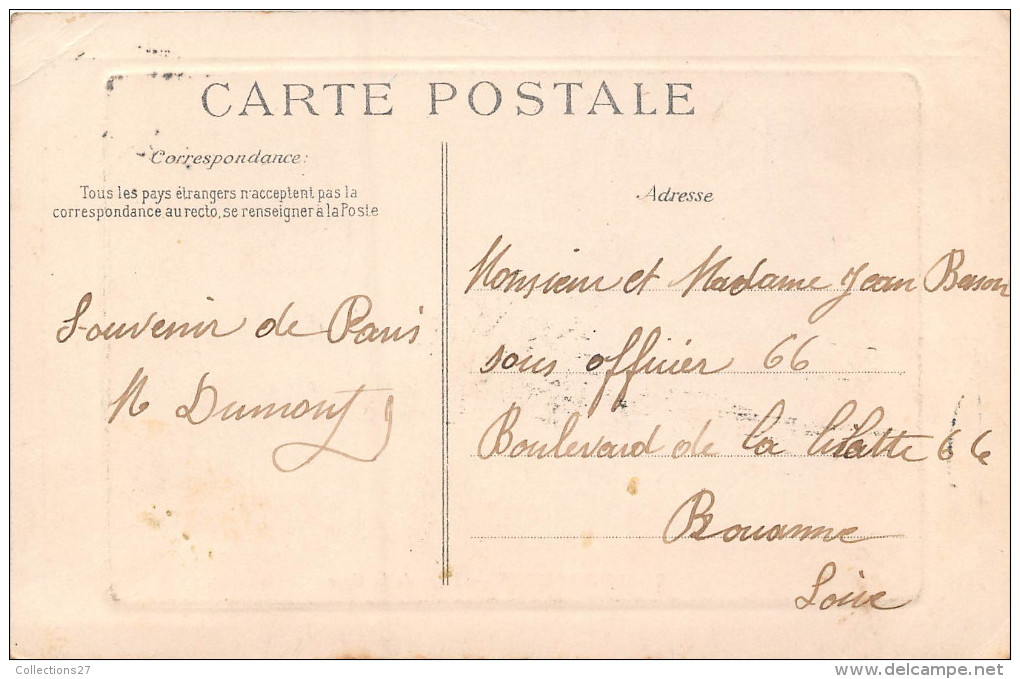 CARTE POSTALE
Correspondance:
Tous les pays étrangers n'acceptent pas la
correspondance au recto, se renseigner à la Poste
Souvenir de Paris
N Dumont
Adresse
Monsieur et Madame Jean Besson
sous officier 66
Boulevard de la 66
Rouanne
Loire
Collections27
www.delcampe.net